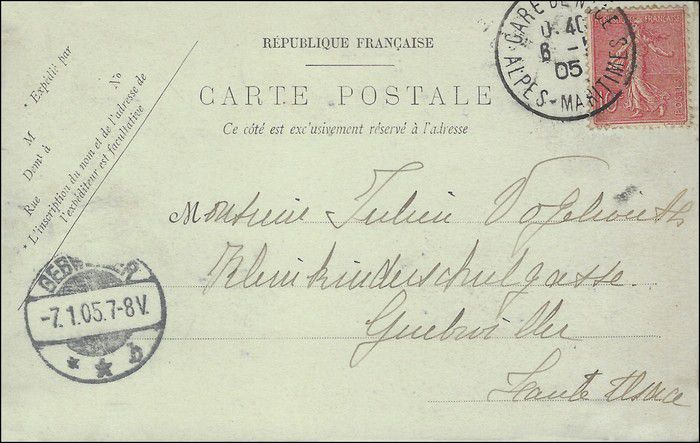 RÉPUBLIQUE FRANÇAISE
CARTE POSTALE
Ce côté est exclusivement réservé à l'adresse
* Expédié par
M No
Demt à
Rue
* L'inscription du nom et de l'adresse de
l'expéditeur est facultative
GARE DE NICE
0.40
6 - 1
05
ALPES-MARITIMES
Monsieur Julien
Kleinkinderschulgasse
Guebwiller
Haute Alsace
GEBWEILER
-7.1.05.7-8V.
* * b